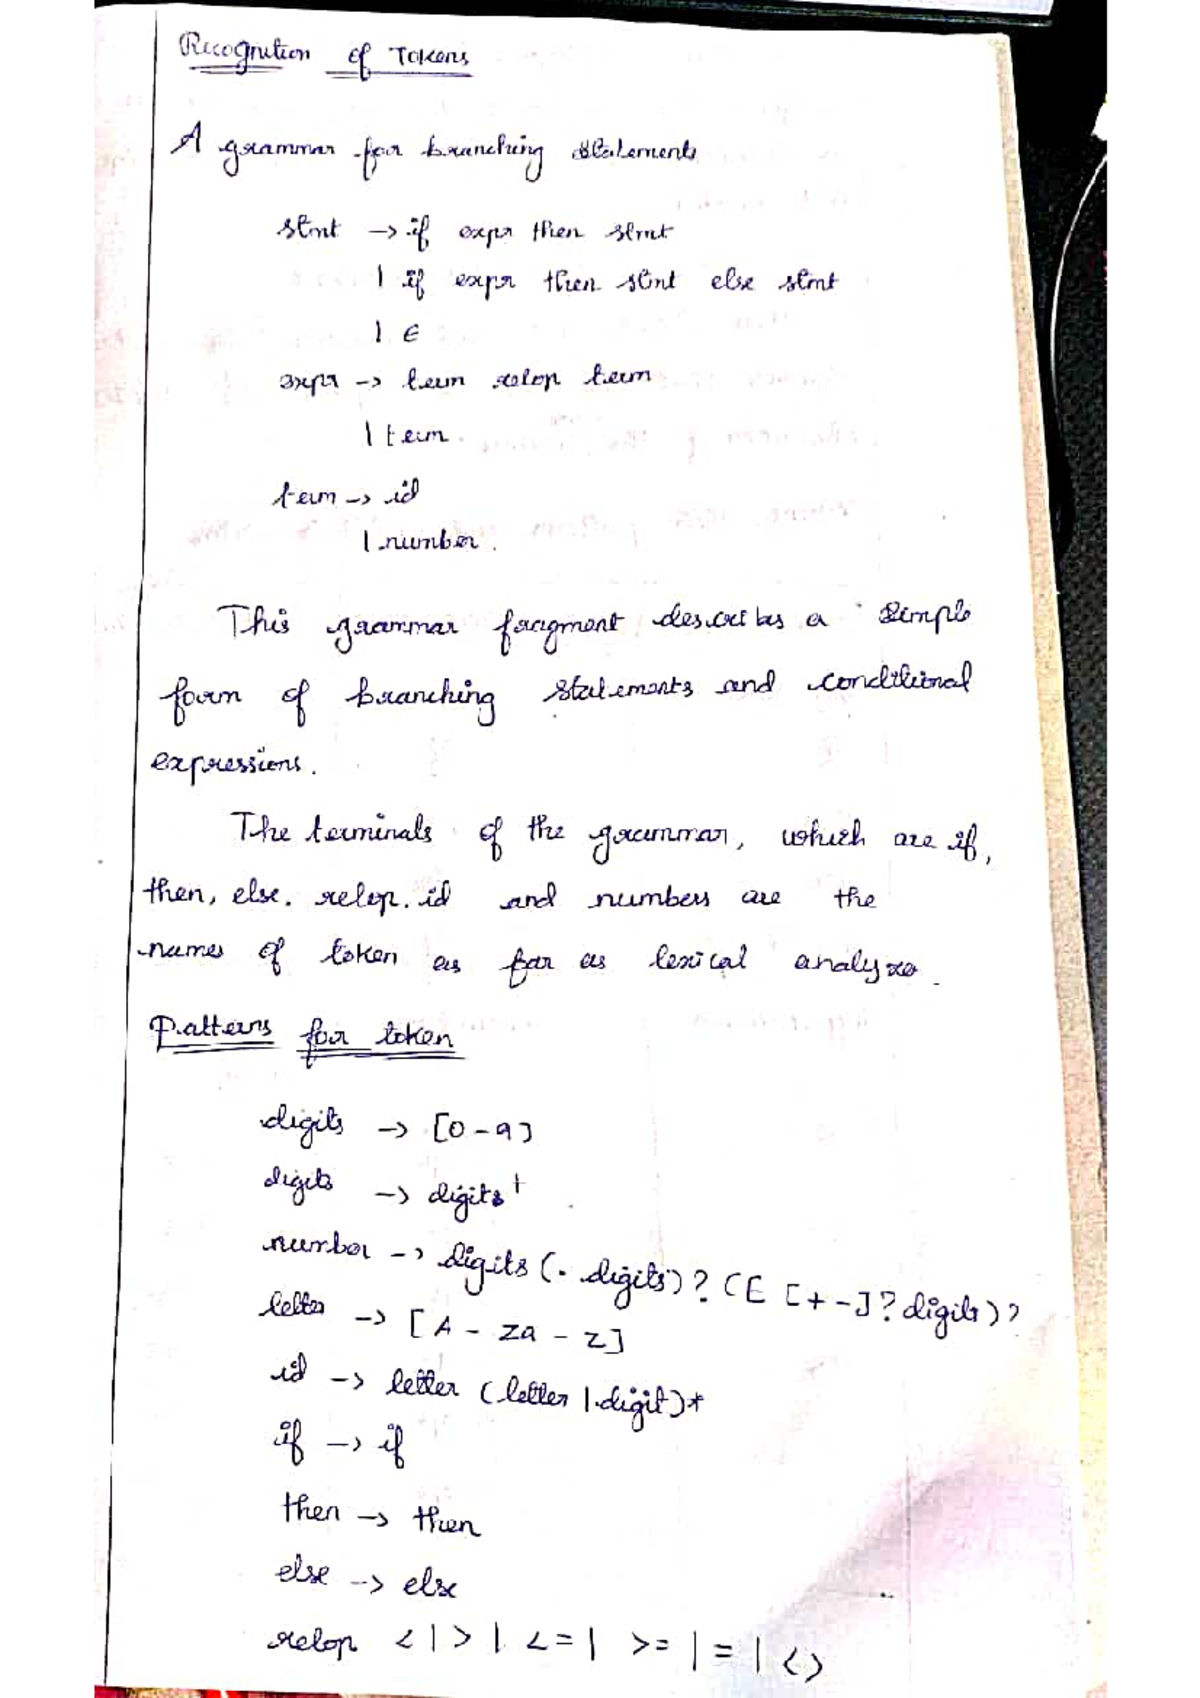 Recognition of Tokens
A grammar for branching statements
stmt → if expr then stmt
| if expr then stmt else stmt
| ε
expr → term relop term
| term
term → id
| number.
This grammar fragment describes a simple
form of branching statements and conditional
expressions.
The terminals of the grammar, which are if,
then, else. relop. id and numbers are the
names of token as far as lexical analyze.
Patterns for token
digits → [0-9]
digits → digits+
number → digits (. digits)? (E [+-]? digits)?
letter → [A - Za - z]
id → letter (letter | digit)*
if → if
then → then
else → else
relop < | > | <= | >= | = | <>